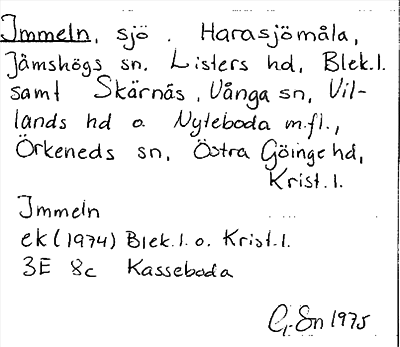 Immeln, sjö. Harasjömåla,
Jämshögs sn, Listers hd, Blek.l.
samt Skärnäs, Vånga sn, Vil-
lands hd o. Nyteboda m.fl.,
Örkeneds sn, Östra Göinge hd,
Krist.l.
Immeln
ek (1974) Blek.l. o. Krist.l.
3E 8c Kasseboda
G. Sn 1975